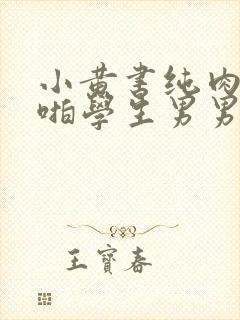 小黄書纯肉
啪學生男男
王寳春